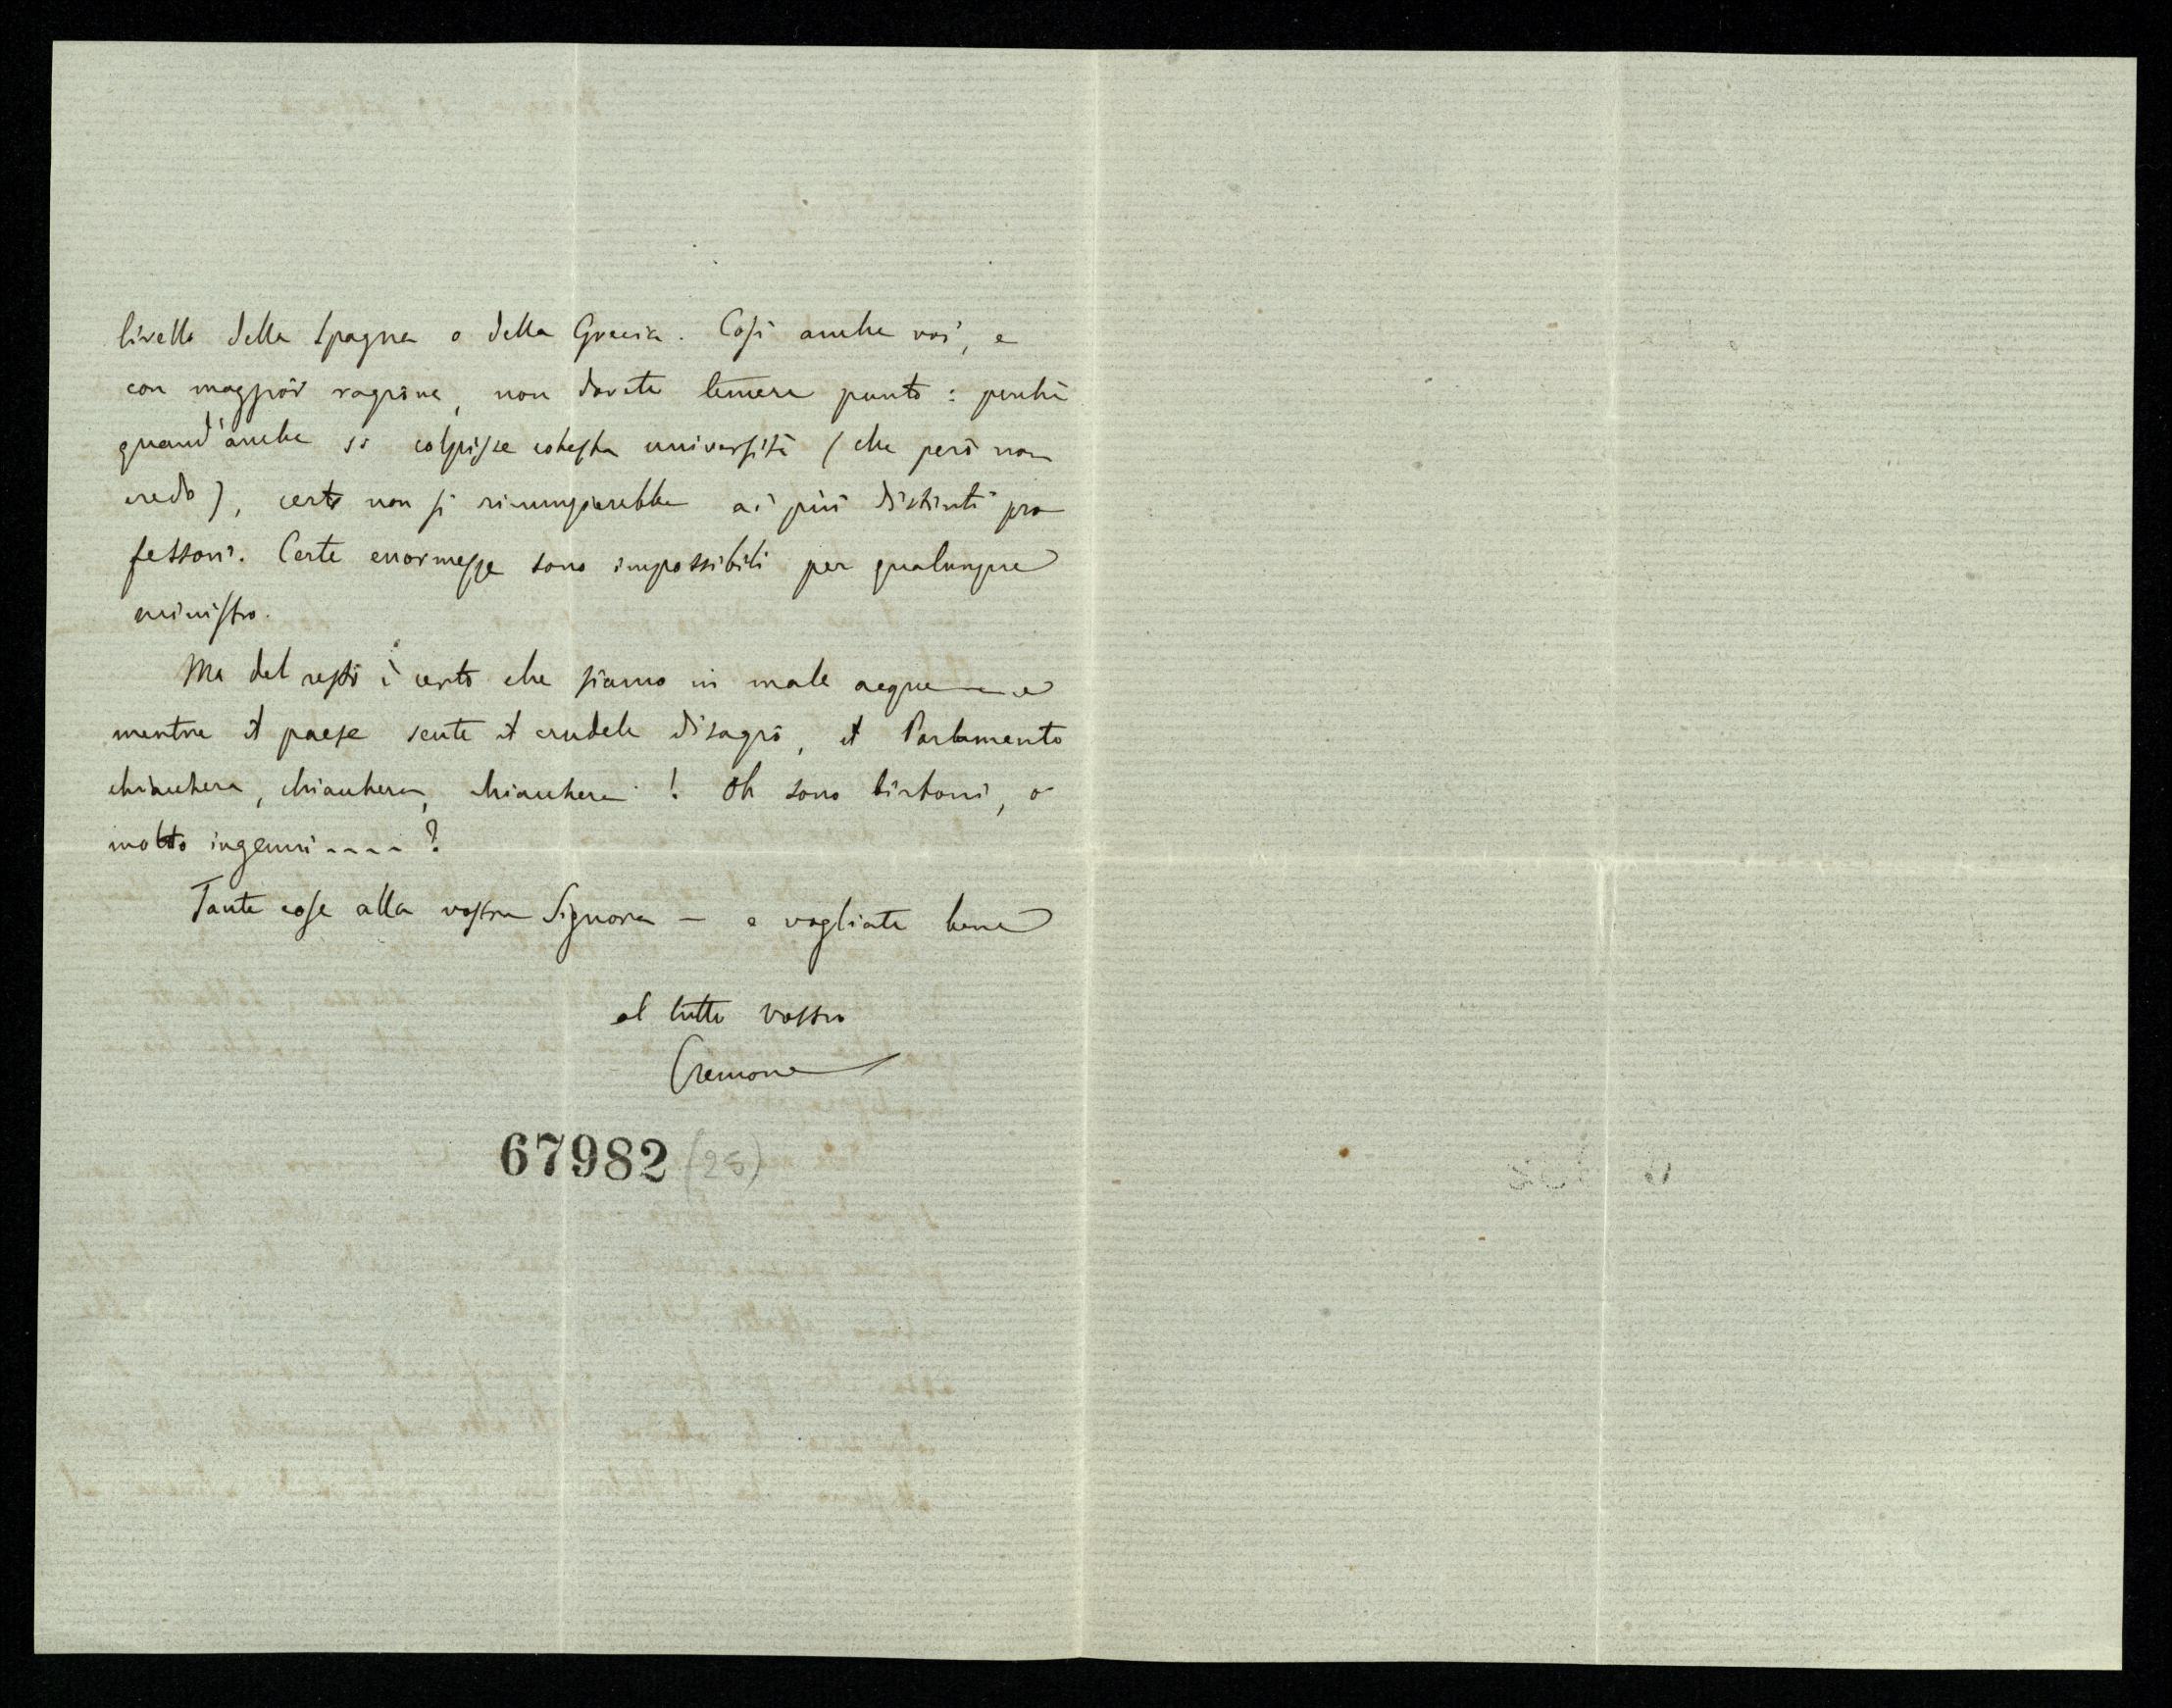 livello della Spagna o della Grecia. Così anche voi, e
con maggior ragione, non dovete temere punto: perchè
quand'anche si colpisse cotesta università (che però non
credo), certo non si rinunzierebbe ai più distinti pro
fessori. Certe enormezze sono impossibili per qualunque
ministro.
Ma del resto è certo che siamo in male acque e
mentre il paese sente il crudele disagio, il Parlamento
chiacchera, chiacchera, chiacchera! Oh sono birboni, o
molto ingenui ----?
Tante cose alla vostra Signora — e vogliate bene
al tutto vostro
Cremona
67982 (25)